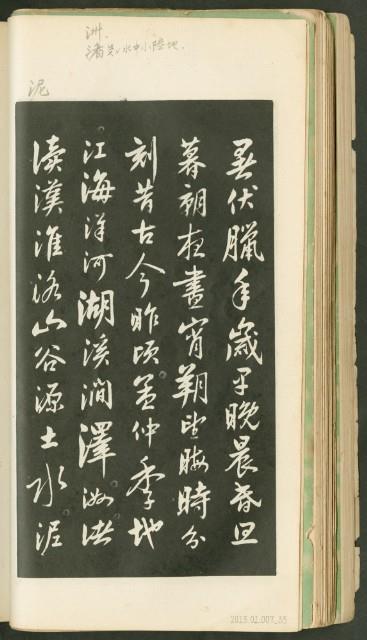 洲.
渚 水中小陸地.
泥
伏臘年歲早晚晨昏旦
暮朝夜晝宵朔望晦時分
刻昔古今昨頃孟仲季地
江海洋河湖溪澗澤洲渚
瀆漢淮洛山谷源土水泥
2015.02.007_35